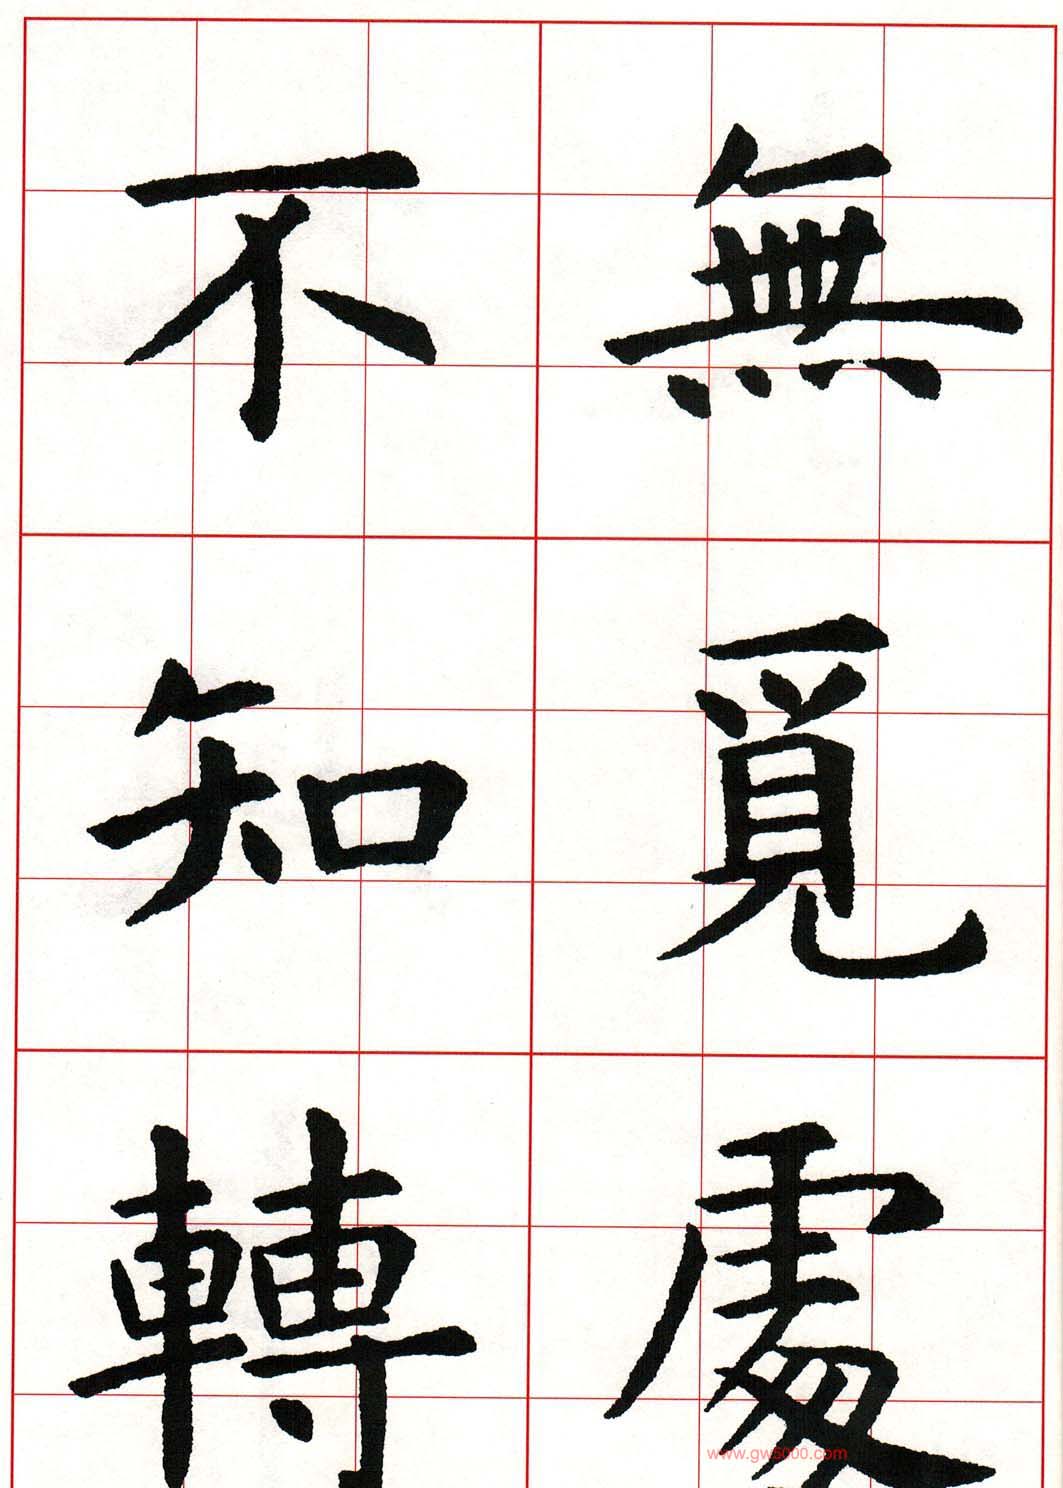 無覓處
不知轉
www.gw5000.com